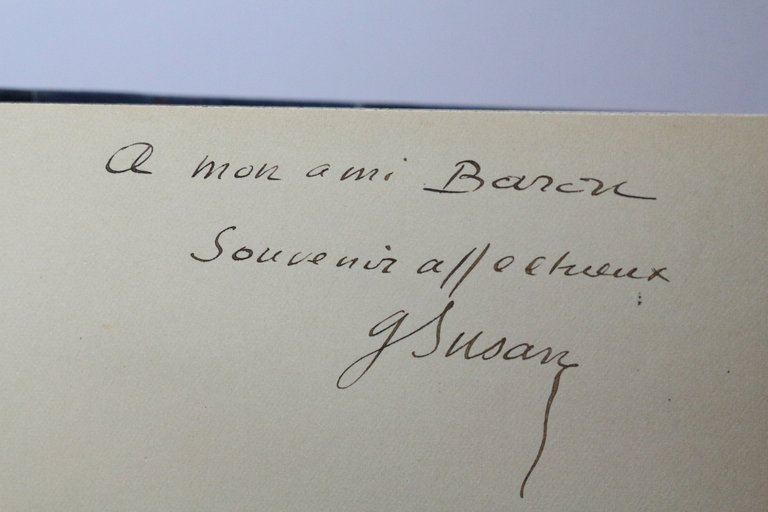 A mon ami Baron
Souvenir affectueux
G Susan